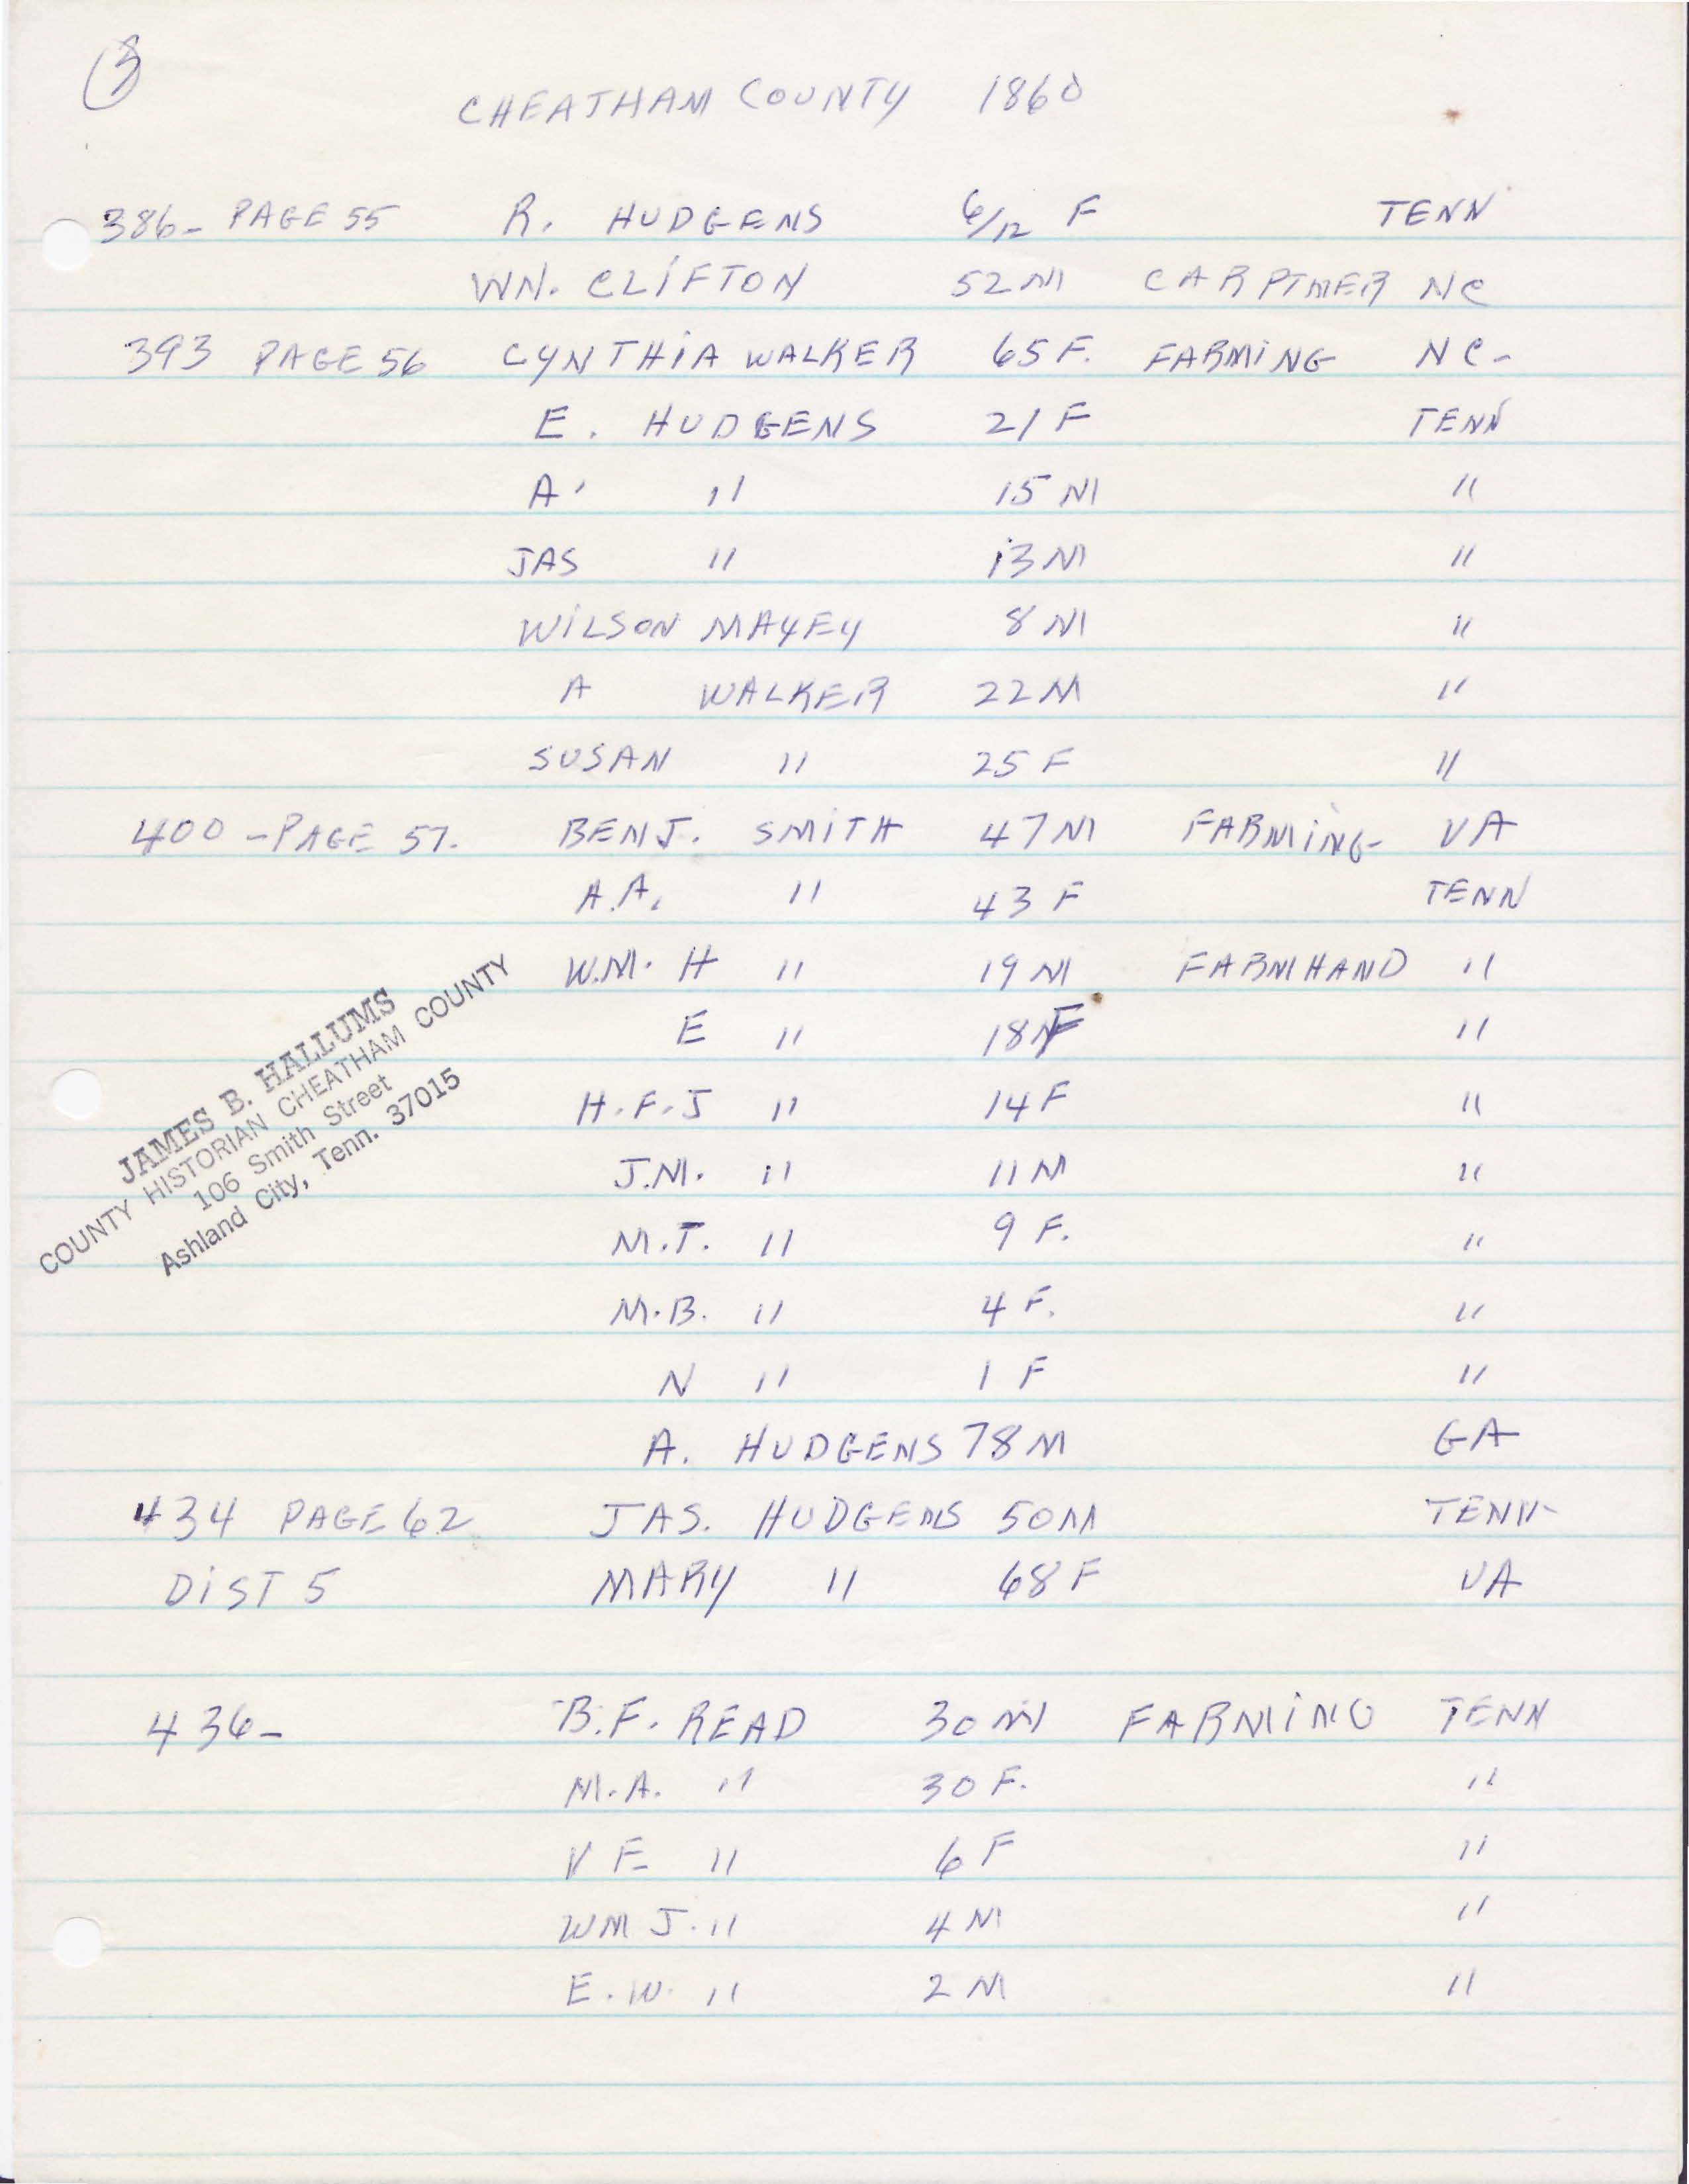 3
CHEATHAM COUNTY 1860
386- PAGE 55 R. HUDGENS 6/12 F TENN
WN. CLIFTON 52 M CARPTNER NC
393 PAGE 56 CYNTHIA WALKER 65 F. FARMING NC-
E. HUDGENS 21 F TENN
A. " 15 M "
JAS " 13 M "
WILSON MAYEY 8 M "
A WALKER 22 M "
SUSAN " 25 F "
400 - PAGE 57. BENJ. SMITH 47 M FARMING- VA
A.A. " 43 F TENN
W.M. H " 19 M FARMHAND "
E " 18 F "
H.F.J " 14 F "
J.M. " 11 M "
M.T. " 9 F. "
M.B. " 4 F. "
N " 1 F "
A. HUDGENS 78 M GA
434 PAGE 62 JAS. HUDGENS 50 M TENN-
DIST 5 MARY " 68 F VA
436- B.F. READ 30 M FARMING TENN
M.A. " 30 F. "
V F " 6 F "
WM J. " 4 M "
E.W. " 2 M "
JAMES B. HALLUMS
COUNTY HISTORIAN CHEATHAM COUNTY
106 Smith Street
Ashland City, Tenn. 37015